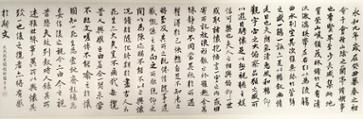 永和九年歲在癸丑暮春之初會
于會稽山陰之蘭亭脩禊事
也群賢畢至少長咸集此地
有崇山峻領茂林脩竹又有清
流激湍暎帶左右引以為流觴
曲水列坐其次雖無絲竹管弦
之盛一觴一詠亦足以暢敘幽情
是日也天朗氣清惠風和暢仰
觀宇宙之大俯察品類之盛
所以遊目騁懷足以極視聽之娛
信可樂也夫人之相與俯仰一世
或取諸懷抱悟言一室之內或因
寄所託放浪形骸之外雖趣舍萬
殊靜躁不同當其欣於所遇暫
得於己快然自足不知老之將
至及其所之既惓情隨事遷感
慨係之矣向之所欣俛仰之間以
為陳迹猶不能不以之興懷況脩
短隨化終期於盡古人云死
生亦大矣豈不痛哉每攬昔人
興感之由若合一契未嘗不臨文嗟悼
不能喻之於懷固
知一死生為虛誕齊彭殤為
妄作後之視今亦由今之視昔
悲夫故列敘時人錄其所
述雖世殊事異所以興懷其
致一也後之攬者亦將有感
於斯文